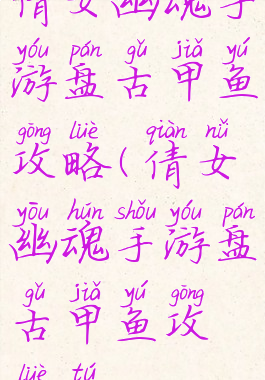 倩女幽魂手
yóu pán gǔ jiǎ yú
游盘古甲鱼
gōng lüè qiàn nǚ
攻略(倩女
yōu hún shǒu yóu pán
幽魂手游盘
gǔ jiǎ yú gōng
古甲鱼攻
lüè tú